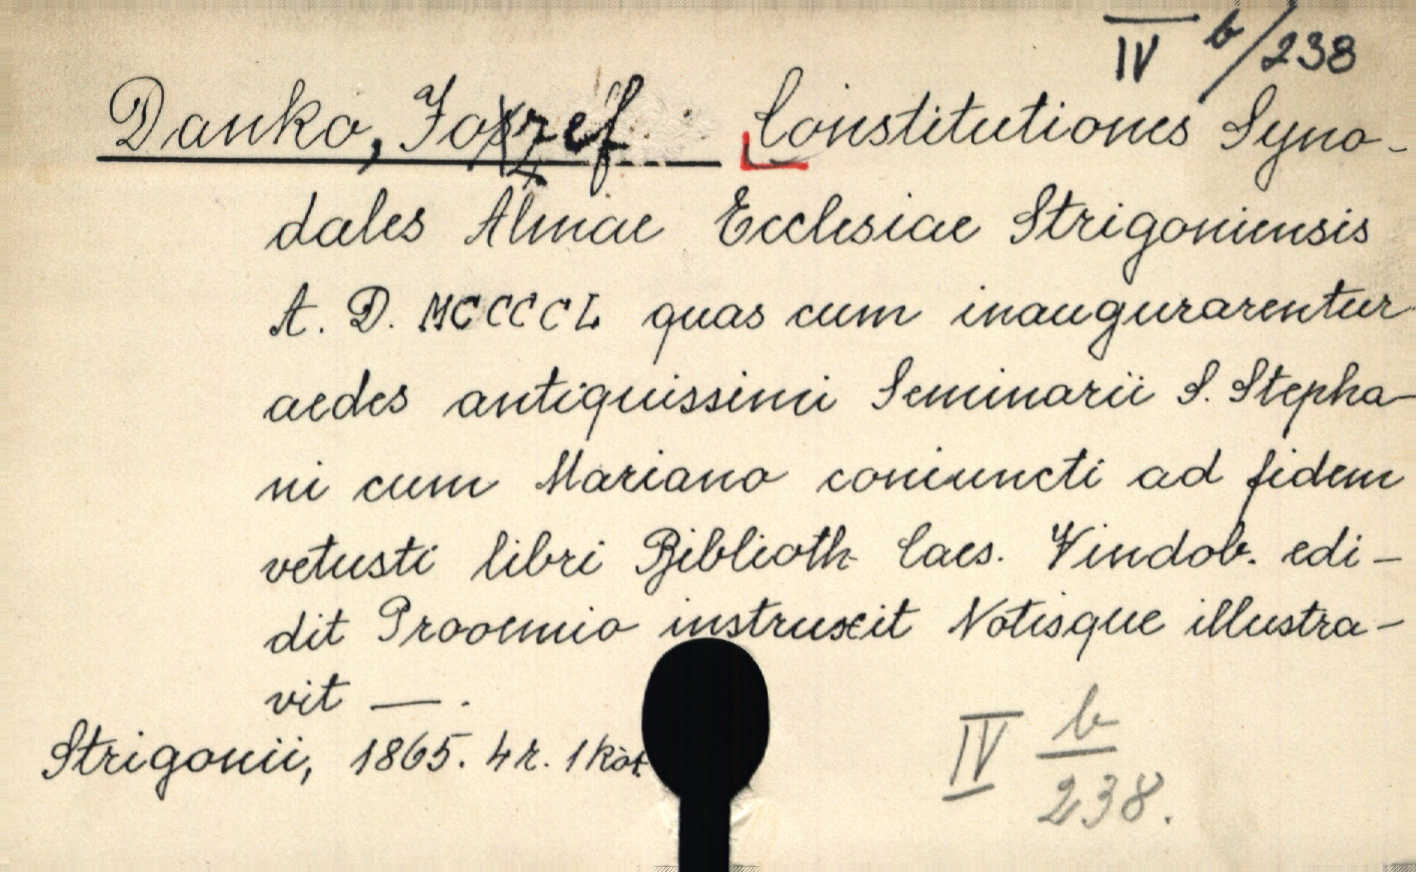 IV b/238
Danko, József Constitutiones Syno-
dales Almae Ecclesiae Strigoniensis
A. D. MCCCCL quas cum inaugurarentur
aedes antiquissimi Seminarii S. Stepha-
ni cum Mariano coniuncti ad fidem
vetusti libri Biblioth Caes. Vindob. edi-
dit Prooemio instruxit Notisque illustra-
vit —.
Strigonii, 1865. 4r. 1 köt
IV b
238.